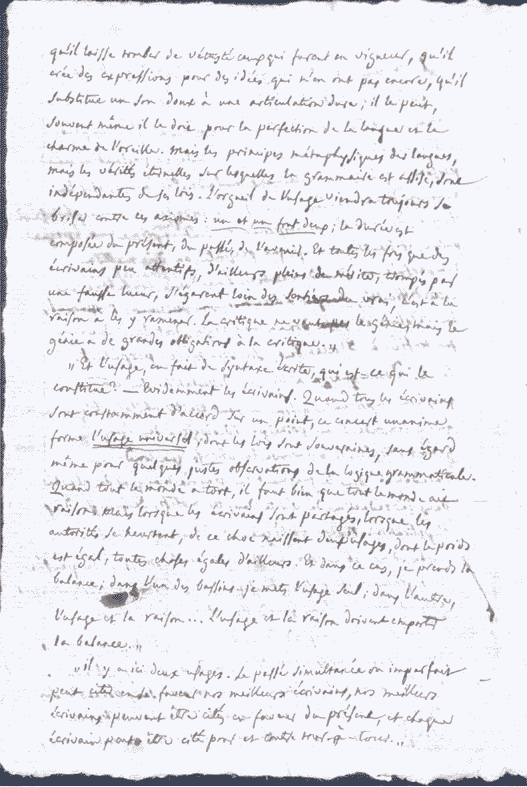 qu'il laisse tomber de vétusté ceux qui furent en vigueur, qu'il
crée des expressions pour des idées qui n'en ont pas encore, qu'il
substitue un son doux à une articulation dure ; il le peut,
souvent même il le doit pour la perfection de la langue et le
charme de l'oreille. Mais les principes métaphysiques des langues,
mais les vérités éternelles sur lesquelles la grammaire est assise, sont
indépendantes de ses lois. L'orgueil de l'usage viendra toujours se
briser contre ces axiomes : un et un font deux ; la durée est
composée du présent, du passé, de l'avenir. Et toutes les fois que des
écrivains peu attentifs, d'ailleurs pleins de mérite, trompés par
une fausse lueur, s'égarent loin des sentiers du vrai, c'est à la
raison à les y ramener. La critique ne le génie ; mais le
génie a de grandes obligations à la critique. "
" Et l'usage, en fait de syntaxe écrite, qui est-ce qui le
constitue ? — Evidemment les écrivains. Quand tous les écrivains
sont constamment d'accord sur un point, ce concert unanime
forme l'usage universel, dont les lois sont souveraines, sans égard
même pour quelques justes observations de la logique grammaticale.
Quand tout le monde a tort, il faut bien que tout le monde ait
raison. Mais lorsque les écrivains sont partagés, lorsque les
autorités se heurtent, de ce choc naissent deux usages, dont le poids
est égal, toutes choses égales d'ailleurs. Et dans ce cas, je prends la
balance ; dans l'un des bassins je mets l'usage seul ; dans l'autre,
l'usage et la raison... L'usage et la raison doivent emporter
la balance. "
" Il y a ici deux usages. Le passé simultané ou imparfait
peut citer en sa faveur nos meilleurs écrivains, nos meilleurs
écrivains peuvent être cités en faveur du présent, et chaque
écrivain peut être cité pour et contre tour-à-tour. "